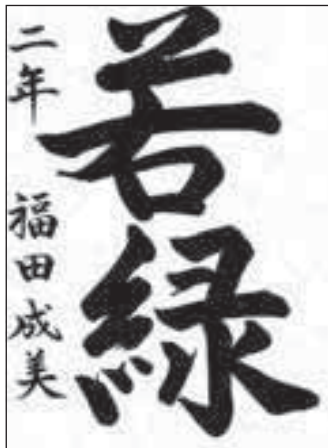 若緑
二年 福田成美